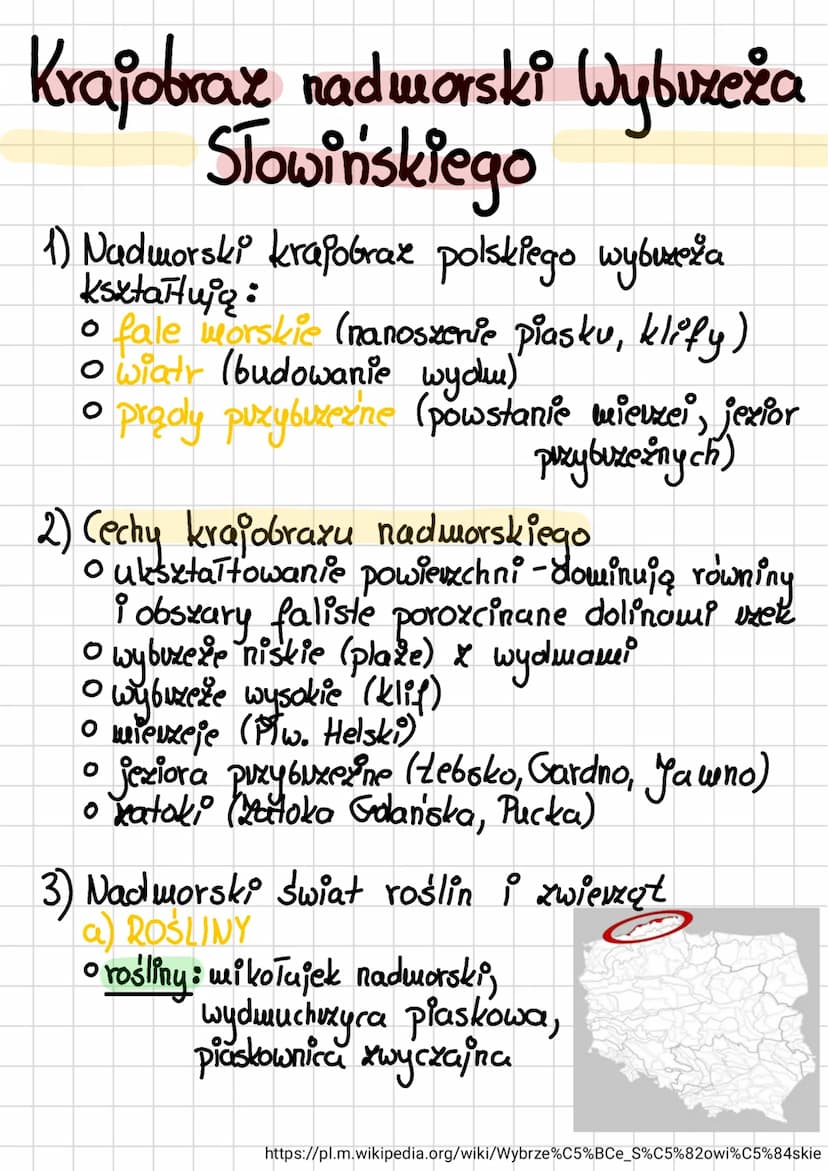 Krajobraz nadmorski Wybrzeża
Słowińskiego
1) Nadmorski krajobraz polskiego wybrzeża
kształtują:
o fale morskie (nanoszenie piasku, klify)
o wiatr (budowanie wydm)
o prądy przybrzeżne (powstanie mierzei, jezior
przybrzeżnych)
2) Cechy krajobrazu nadmorskiego
o ukształtowanie powierzchni - dominują równiny
i obszary faliste porozcinane dolinami rzek
o wybrzeże niskie (plaże) z wydmami
o wybrzeże wysokie (klif)
o mierzeje (Płw. Helski)
o jeziora przybrzeżne (Łebsko, Gardno, Jamno)
o zatoki (Zatoka Gdańska, Pucka)
3) Nadmorski świat roślin i zwierząt
a) ROŚLINY
o rośliny: mikołajek nadmorski,
wydmuchrzyca piaskowa,
piaskownica zwyczajna
https://pl.m.wikipedia.org/wiki/Wybrze%C5%BCe_S%C5%82owi%C5%84skie